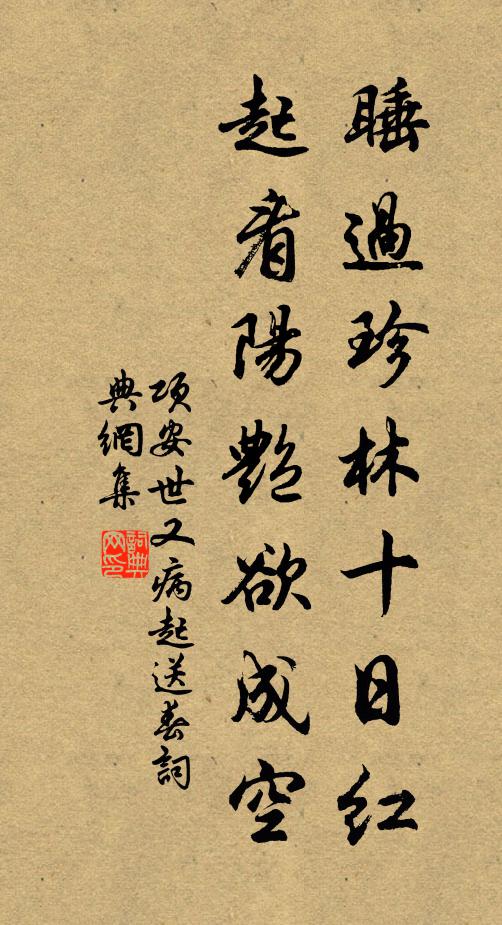 睡過珍林十日紅
起看陽艷欲成空
項安世又病起送春詞
典網集
詞典網印